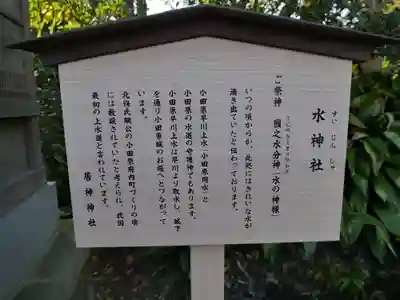 すいじんじゃ
水神社
ご祭神 國之水分神(水の神様)
くにのみくまりのかみ
いつの頃からか、此処にはきれいな水が
湧き出ていたと伝わっております。
小田原早川上水(小田原用水)と
小田原の水道の守護神でもあります。
小田原早川上水は早川より取水し、城下
を通り小田原城のお堀へとつながって
います。
北條氏綱公の小田原府内町づくりの頃
には敷設されていたと考えられ、我国
最初の上水道と言われています。
居神神社